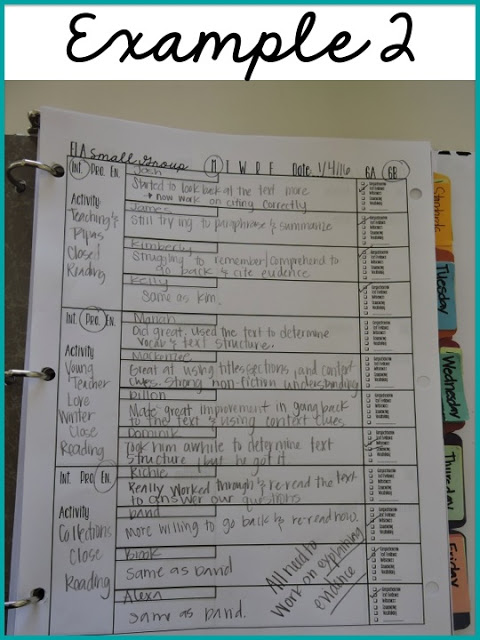 Example 2
ELA Small Group M T W R F Date: 1/4/16 6A 6B
Int. Pro. En.
Activity:
Teaching &
Closed
Reading
Josh
Started to look back at the text more
→ now work on citing correctly
James
Still trying to paraphrase & summarize
Kimberly
Struggling to remember/comprehend to
go back & cite evidence
Kelly
same as kim.
Int. Pro. En.
Activity
Young
Teacher
Love
Winter
Close
Reading
Mariah
Did great. Used the text to determine
vocab & text structure.
Mackenzee
Great at using titles, sections, and context
clues. strong non-fiction understanding
Dillon
Made great improvement in going back
to the text & using context clues
Dominik
Took him awhile to determine text
structure, but he got it.
Int. Pro. En.
Activity:
Collections
Close
Reading
Richie
Really worked through & re-read the text
to answer our questions
David
More willing to go back & re-read now.
Brook
Same as david
Alexa
same as david.
All need to
work on explaining
evidence
Tuesday
Wednesday
Thursday
Friday